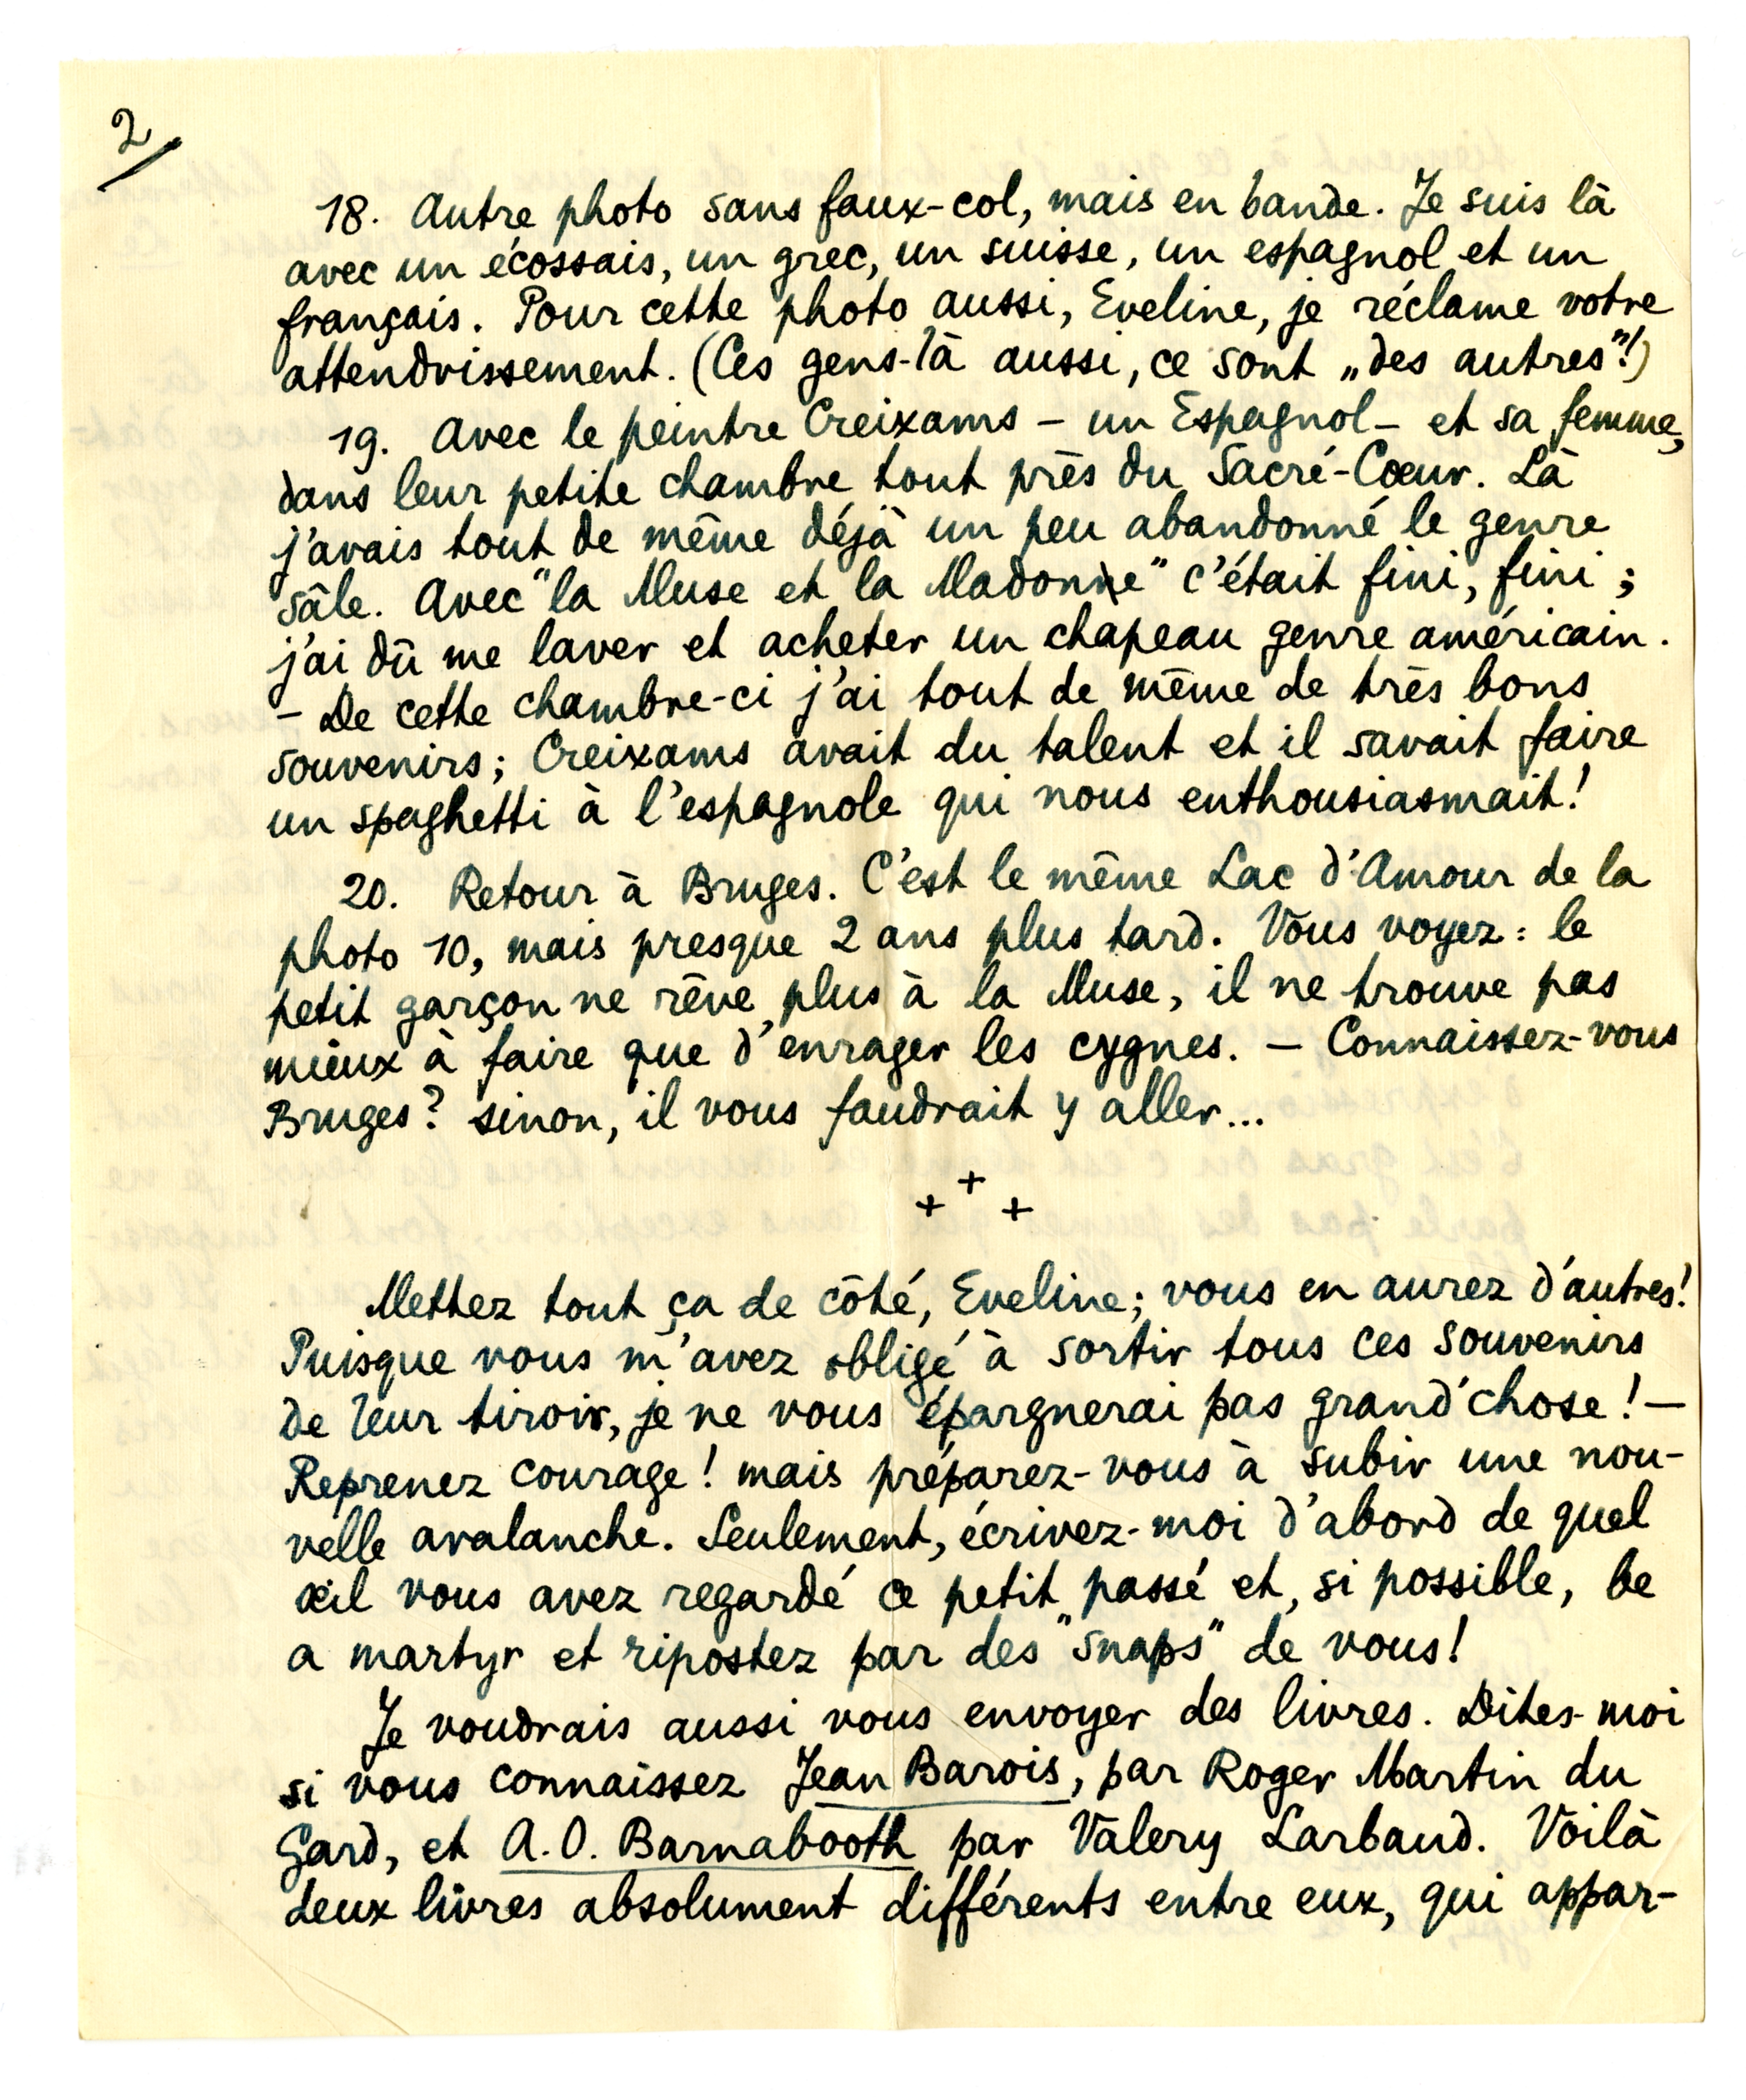 2/
18. Autre photo sans faux-col, mais en bande. Je suis là
avec un écossais, un grec, un suisse, un espagnol et un
français. Pour cette photo aussi, Eveline, je réclame votre
attendrissement. (Ces gens-là aussi, ce sont „des autres"!)
19. Avec le peintre Creixams – un Espagnol – et sa femme,
dans leur petite chambre tout près du Sacré-Cœur. Là
j'avais tout de même déjà un peu abandonné le genre
sâle. Avec "la Muse et la Madonne" c'était fini, fini ;
j'ai dû me laver et acheter un chapeau genre américain.
– De cette chambre-ci j'ai tout de même de très bons
souvenirs; Creixams avait du talent et il savait faire
un spaghetti à l'espagnole qui nous enthousiasmait!
20. Retour à Bruges. C'est le même Lac d'Amour de la
photo 10, mais presque 2 ans plus tard. Vous voyez : le
petit garçon ne rêve plus à la Muse, il ne trouve pas
mieux à faire que d'enrager les cygnes. – Connaissez-vous
Bruges? sinon, il vous faudrait y aller...
+ + +
Mettez tout ça de côté, Eveline; vous en aurez d'autres!
Puisque vous m'avez obligé à sortir tous ces souvenirs
de leur tiroir, je ne vous épargnerai pas grand'chose! –
Reprenez courage! mais préparez-vous à subir une nou-
velle avalanche. Seulement, écrivez-moi d'abord de quel
œil vous avez regardé ce petit passé et, si possible, be
a martyr et ripostez par des "snaps" de vous!
Je voudrais aussi vous envoyer des livres. Dites-moi
si vous connaissez Jean Barois, par Roger Martin du
Gard, et A.O. Barnabooth par Valery Larbaud. Voilà
deux livres absolument différents entre eux, qui appar-